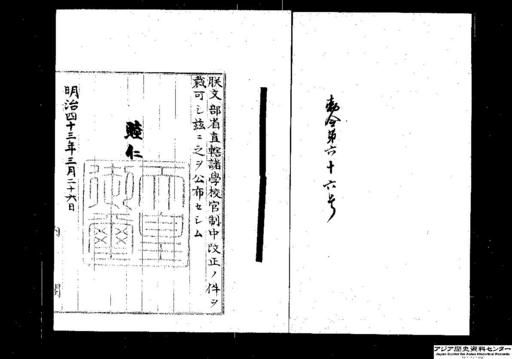 勅令第六十六号
朕文部省直轄諸學校官制中改正ノ件ヲ
裁可シ茲ニ之ヲ公布セシム
睦仁
天皇御璽
明治四十三年三月二十六日
内閣
アジア歴史資料センター
Japan Center for Asian Historical Records